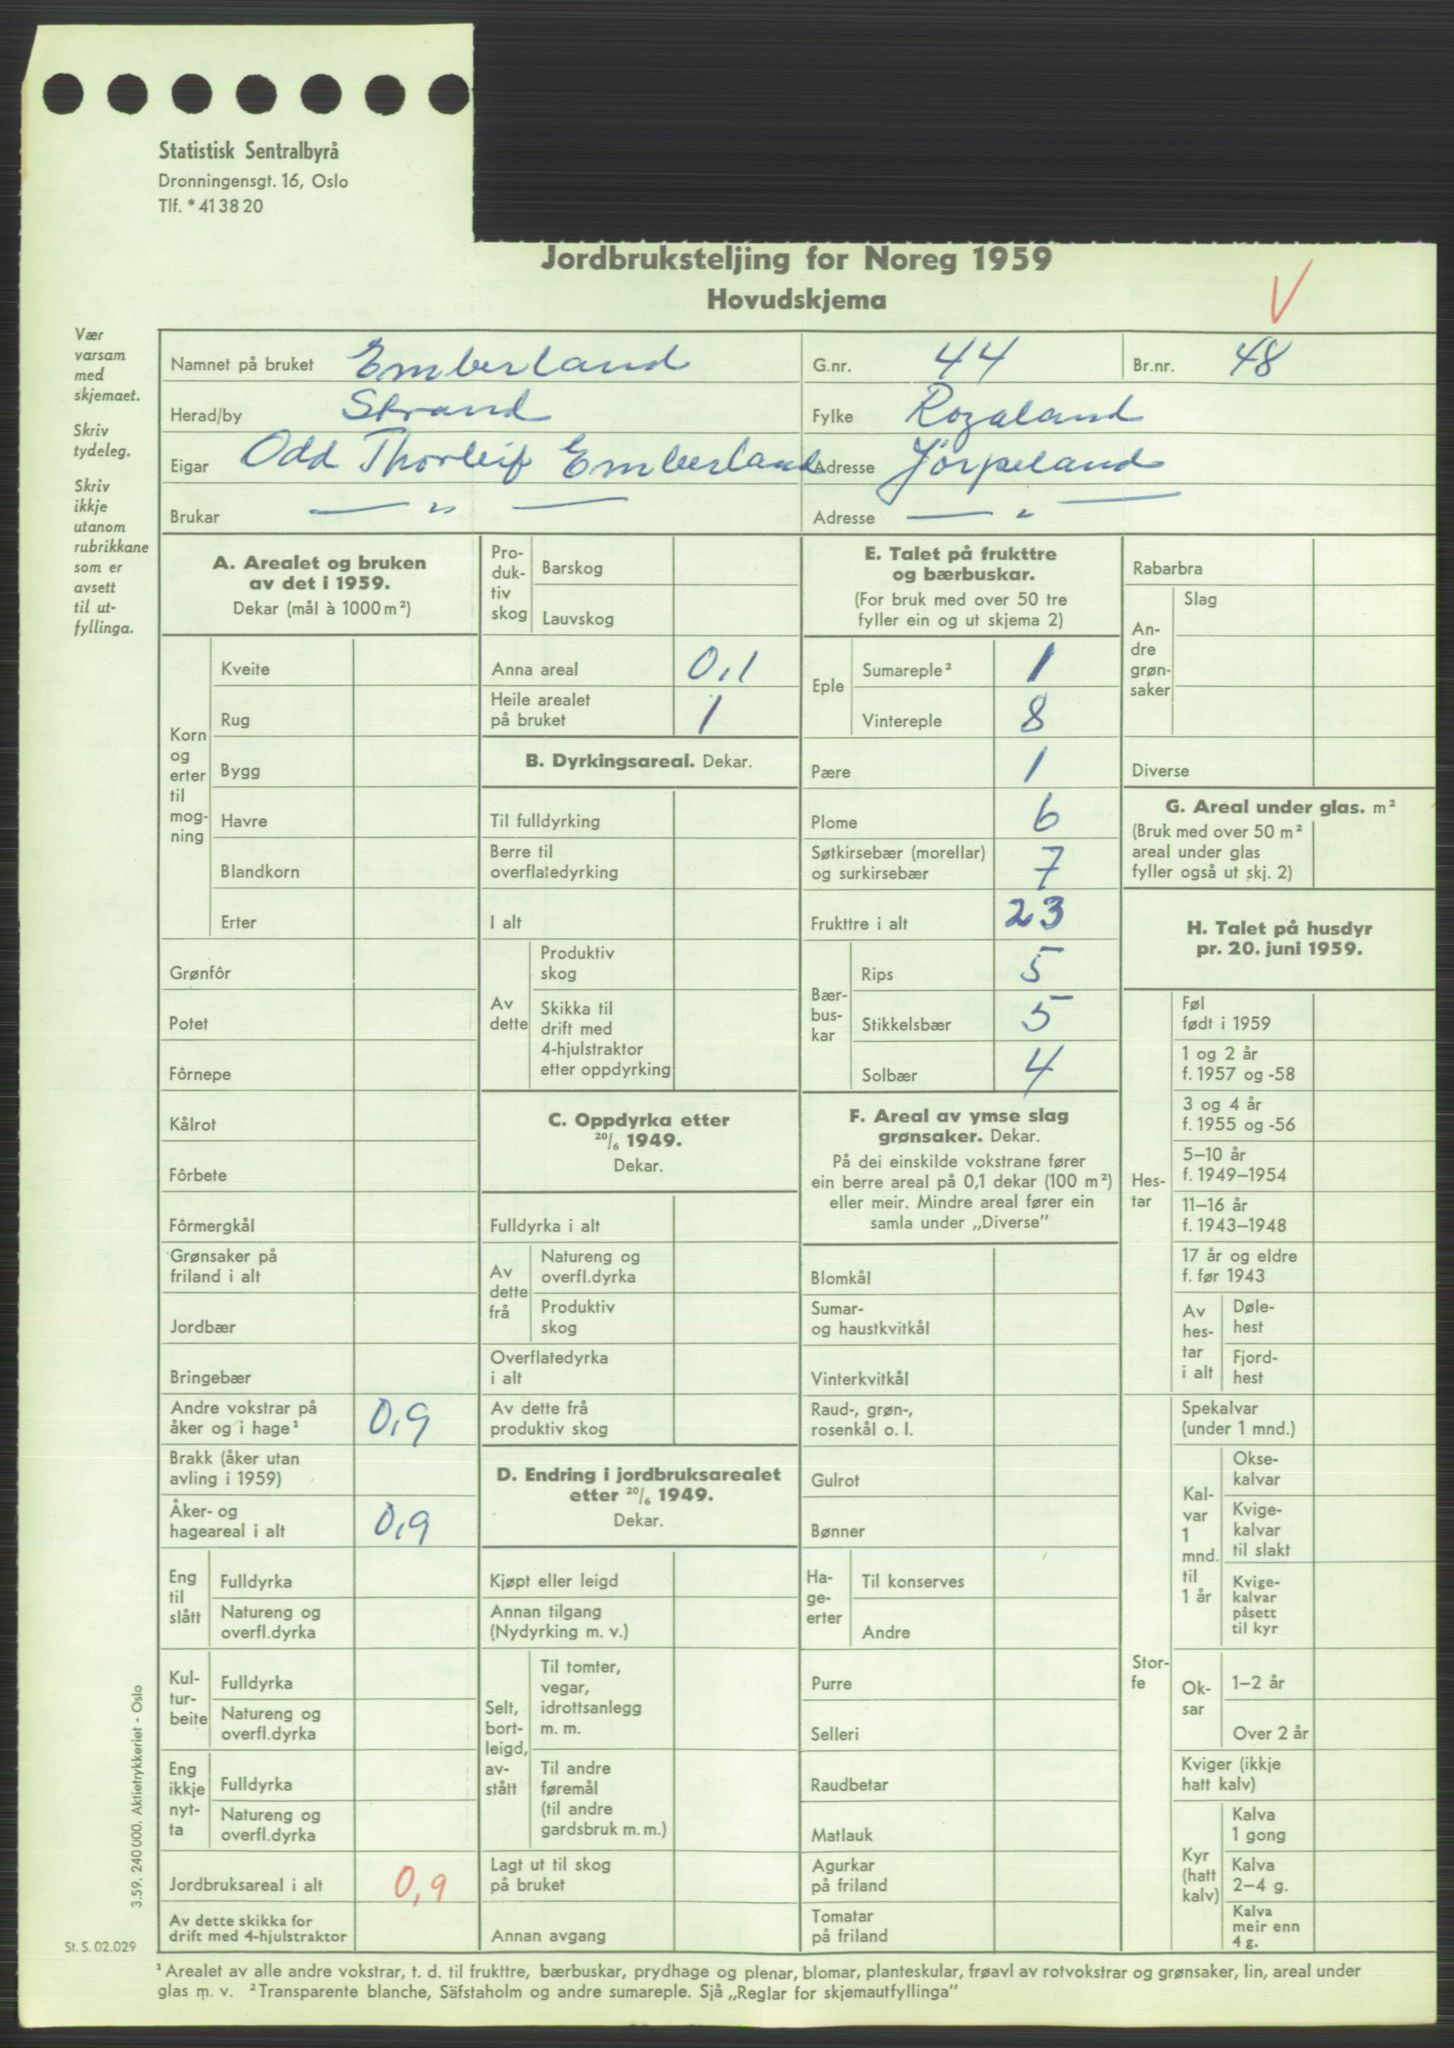 Statistisk Sentralbyrå
Dronningensgt. 16, Oslo
Tlf. *41 38 20
Jordbruksteljing for Noreg 1959
Hovudskjema
V
Vær
varsam
med
skjemaet.
Skriv
tydeleg.
Skriv
ikkje
utanom
rubrikkane
som er
avsett
til ut-
fyllinga.
Namnet på bruket Emberland G.nr. 44 Br.nr. 48
Herad/by Strand Fylke Rogaland
Eigar Odd Thorleif Emberland Adresse Jörpeland
Brukar — „ — Adresse — „ —
A. Arealet og bruken
av det i 1959.
Dekar (mål à 1000 m²)
Korn
og
erter
til
mog-
ning
Kveite
Rug
Bygg
Havre
Blandkorn
Erter
Grønfôr
Potet
Fôrnepe
Kålrot
Fôrbete
Fôrmergkål
Grønsaker på
friland i alt
Jordbær
Bringebær
Andre vokstrar på
åker og i hage¹ 0,9
Brakk (åker utan
avling i 1959)
Åker- og
hageareal i alt 0,9
Eng
til
slått
Fulldyrka
Natureng og
overfl.dyrka
Kul-
tur-
beite
Fulldyrka
Natureng og
overfl.dyrka
Eng
ikkje
nyt-
ta
Fulldyrka
Natureng og
overfl.dyrka
Jordbruksareal i alt 0,9
Av dette skikka for
drift med 4-hjulstraktor
Pro-
duk-
tiv
skog
Barskog
Lauvskog
Anna areal 0,1
Heile arealet
på bruket 1
B. Dyrkingsareal. Dekar.
Til fulldyrking
Berre til
overflatedyrking
I alt
Av
dette
Produktiv
skog
Skikka til
drift med
4-hjulstraktor
etter oppdyrking
C. Oppdyrka etter
20/6 1949.
Dekar.
Fulldyrka i alt
Av
dette
frå
Natureng og
overfl.dyrka
Produktiv
skog
Overflatedyrka
i alt
Av dette frå
produktiv skog
D. Endring i jordbruksarealet
etter 20/6 1949.
Dekar.
Kjøpt eller leigd
Annan tilgang
(Nydyrking m. v.)
Selt,
bort-
leigd,
av-
stått
Til tomter,
vegar,
idrottsanlegg
m. m.
Til andre
føremål
(til andre
gardsbruk m. m.)
Lagt ut til skog
på bruket
Annan avgang
E. Talet på frukttre
og bærbuskar.
(For bruk med over 50 tre
fyller ein og ut skjema 2)
Eple
Sumareple² 1
Vintereple 8
Pære 1
Plome 6
Søtkirsebær (morellar)
og surkirsebær 7
Frukttre i alt 23
Bær-
bus-
kar
Rips 5
Stikkelsbær 5
Solbær 4
F. Areal av ymse slag
grønsaker. Dekar.
På dei einskilde vokstrane fører
ein berre areal på 0,1 dekar (100 m²)
eller meir. Mindre areal fører ein
samla under „Diverse”
Blomkål
Sumar-
og haustkvitkål
Vinterkvitkål
Raud-, grøn-,
rosenkål o. l.
Gulrot
Bønner
Ha-
ge-
erter
Til konserves
Andre
Purre
Selleri
Raudbetar
Matlauk
Agurkar
på friland
Tomatar
på friland
Rabarbra
An-
dre
grøn-
saker
Slag
Diverse
G. Areal under glas. m²
(Bruk med over 50 m²
areal under glas
fyller også ut skj. 2)
H. Talet på husdyr
pr. 20. juni 1959.
Hes-
tar
Føl
født i 1959
1 og 2 år
f. 1957 og -58
3 og 4 år
f. 1955 og -56
5–10 år
f. 1949–1954
11–16 år
f. 1943–1948
17 år og eldre
f. før 1943
Av
hes-
tar
i alt
Døle-
hest
Fjord-
hest
Stor-
fe
Spekalvar
(under 1 mnd.)
Kal-
var
1
mnd.
til
1 år
Okse-
kalvar
Kvige-
kalvar
til slakt
Kvige-
kalvar
påsett
til kyr
Ok-
sar
1–2 år
Over 2 år
Kviger (ikkje
hatt kalv)
Kyr
(hatt
kalv)
Kalva
1 gong
Kalva
2–4 g.
Kalva
meir enn
4 g.
3.59. 240 000. Aktietrykkeriet - Oslo
St. S. 02.029
¹ Arealet av alle andre vokstrar, t. d. til frukttre, bærbuskar, prydhage og plenar, blomar, planteskular, frøavl av rotvokstrar og grønsaker, lin, areal under
glas m. v. ² Transparente blanche, Säfstaholm og andre sumareple. Sjå „Reglar for skjemautfyllinga”